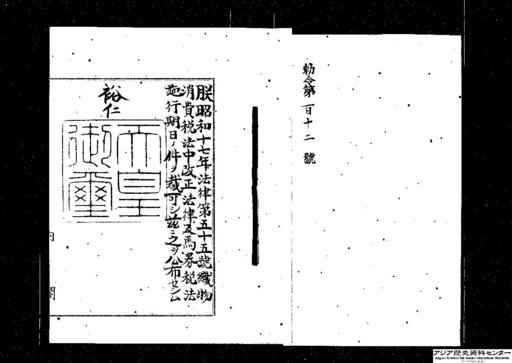 勅令第百十二號
朕昭和十七年法律第五十五號織物
消費税法中改正法律及馬券税法
施行期日ノ件ヲ裁可シ茲ニ之ヲ公布セシム
裕仁
天皇
御璽
内閣
アジア歴史資料センター
Japan Center for Asian Historical Records